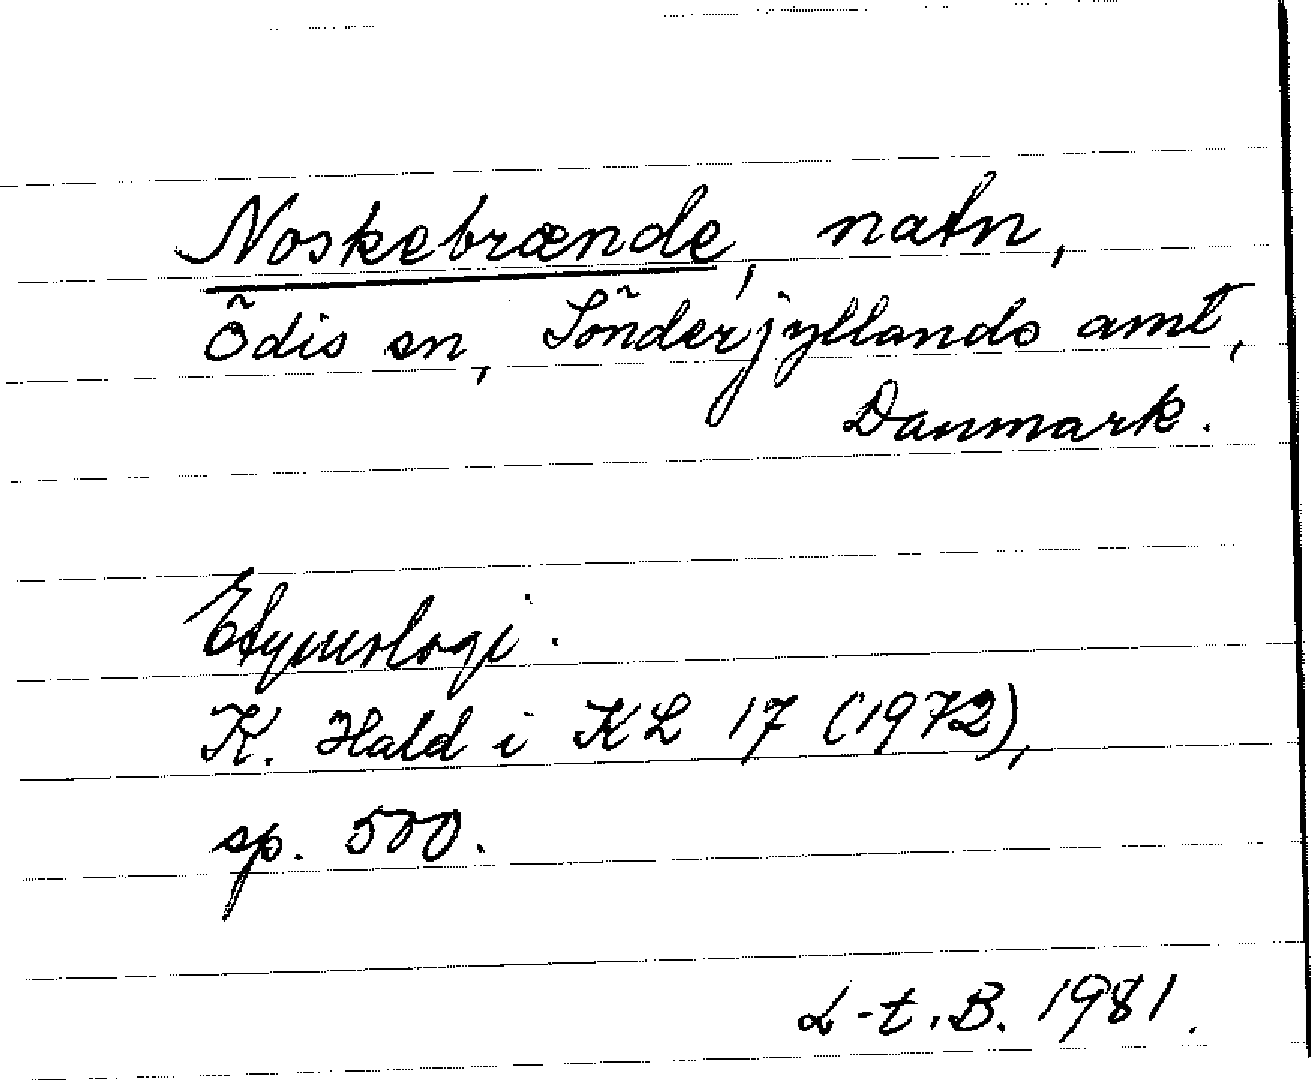 Noskebrænde, natn,
Ödis sn, Sönderjyllands amt,
Danmark.
Etymologi.
K. Hald i KL 17 (1972),
sp. 500.
L-t. B. 1981.